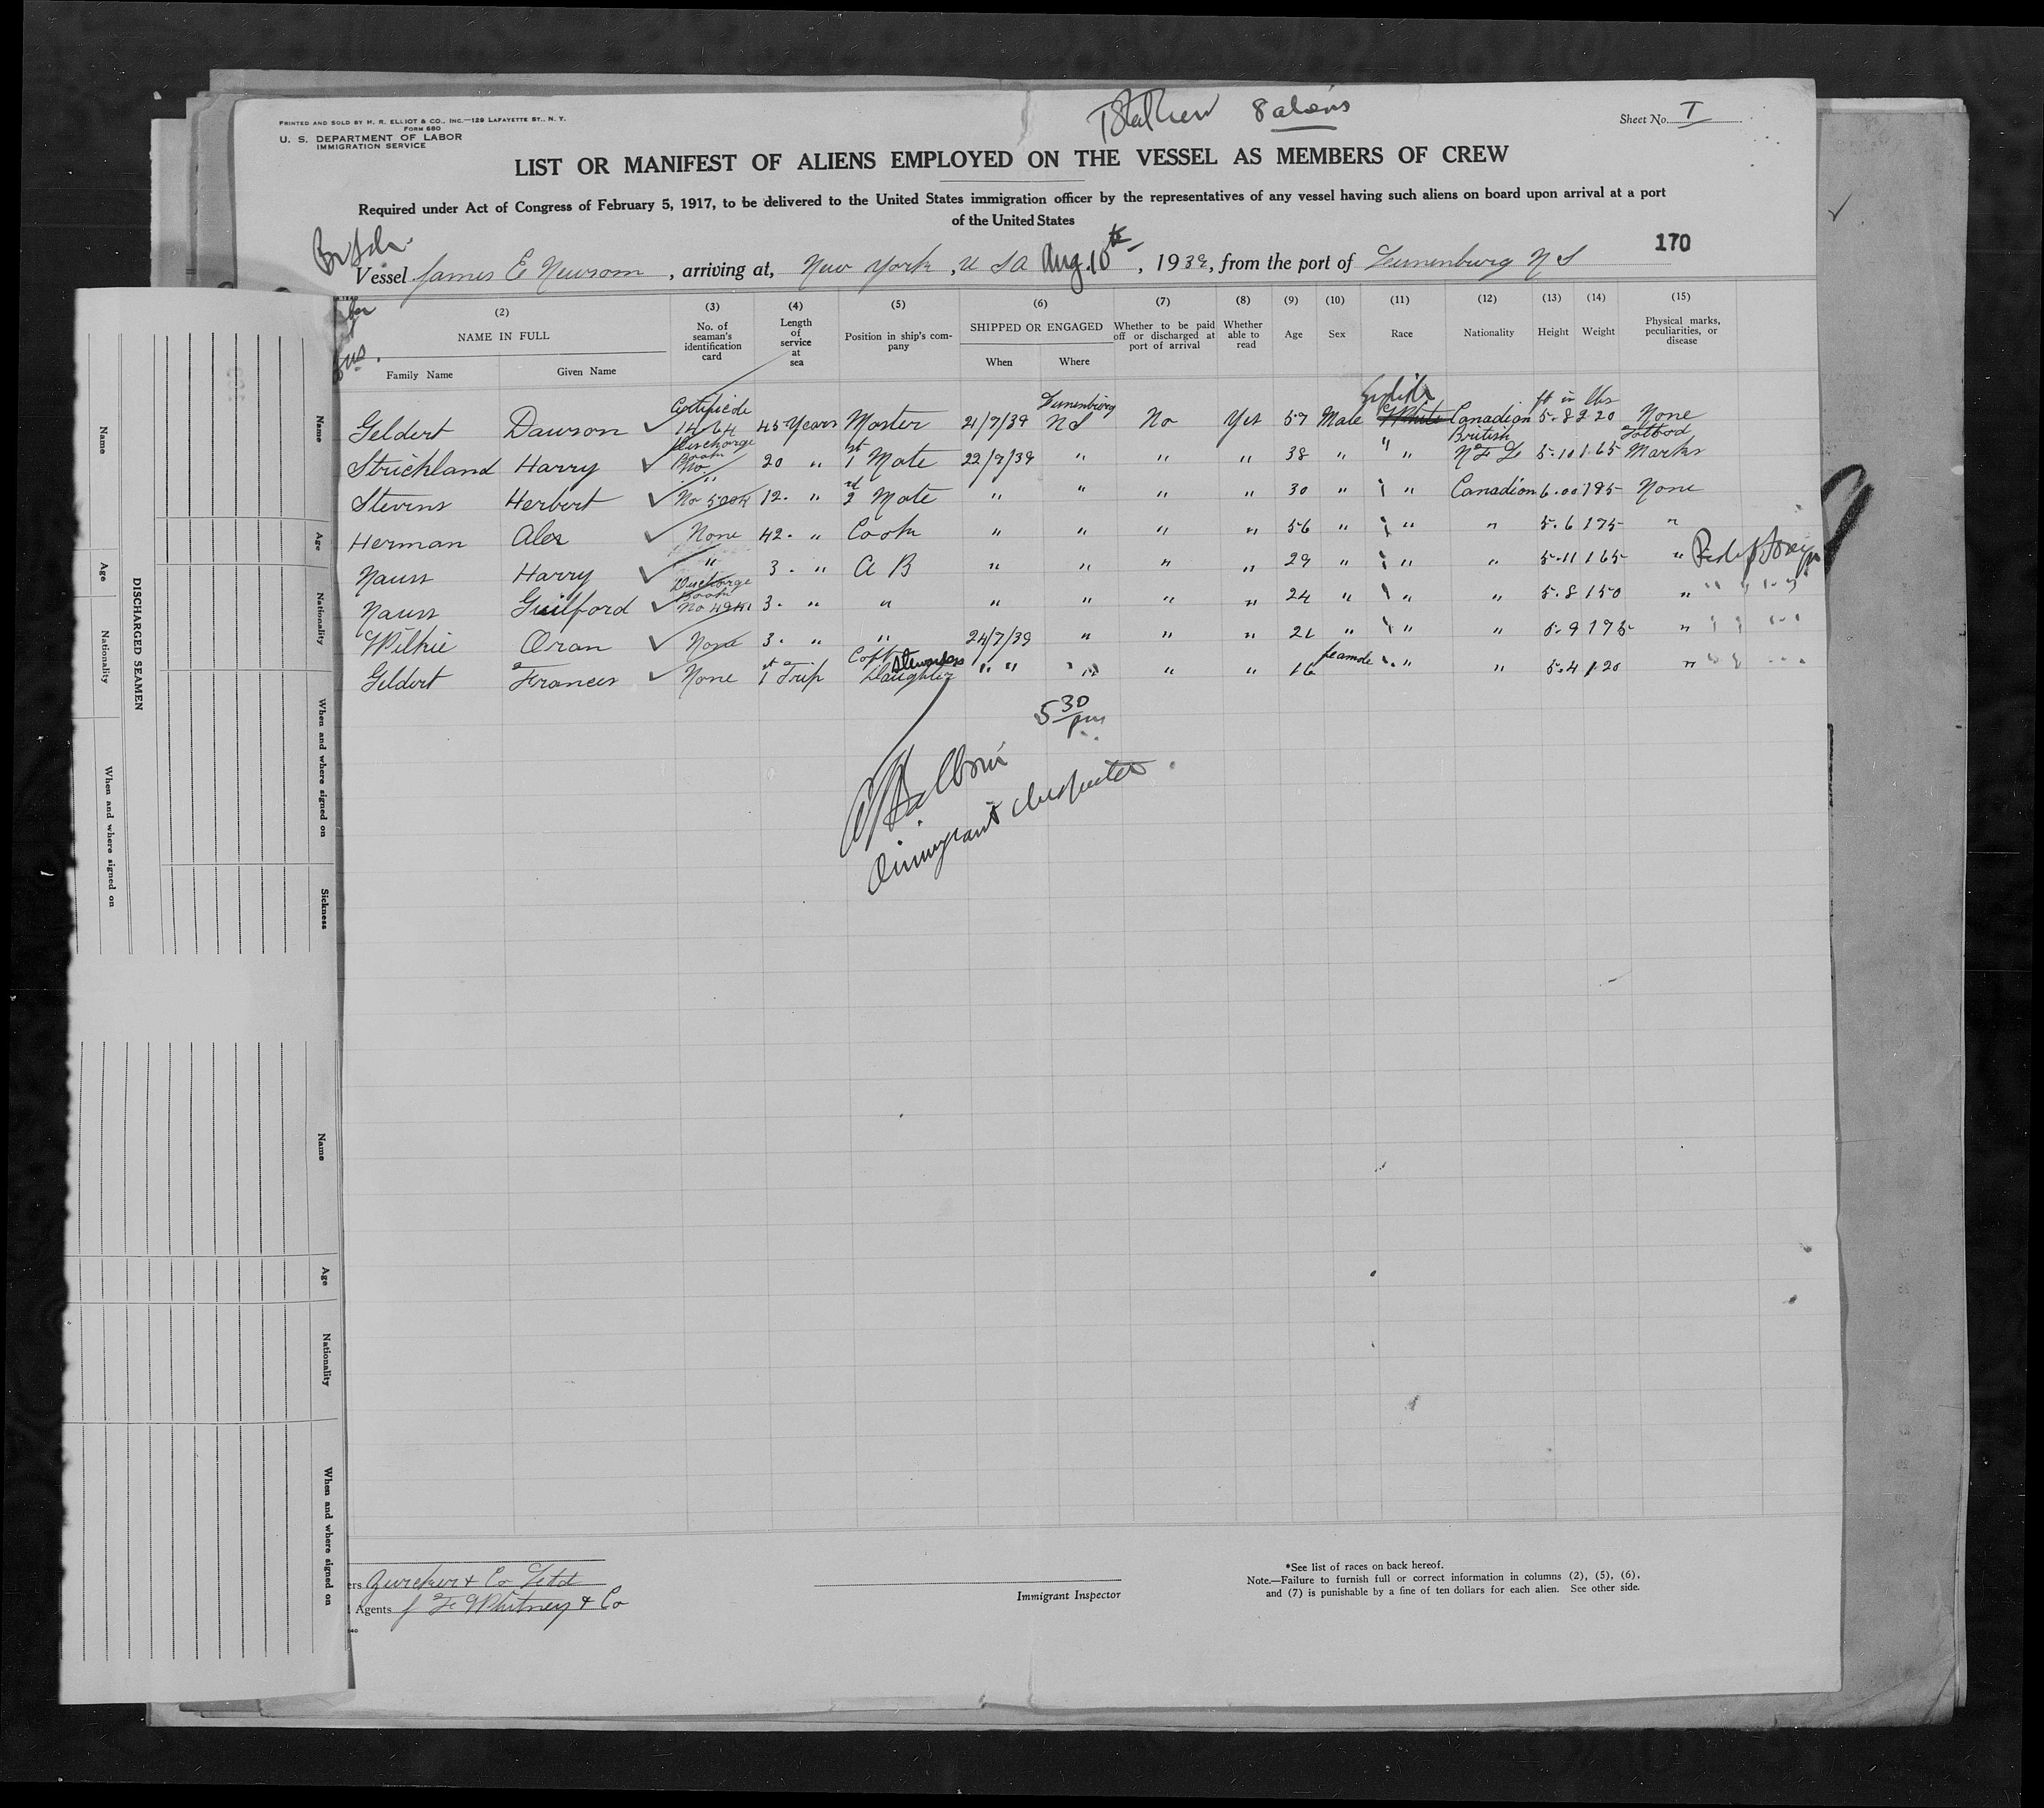 PRINTED AND SOLD BY M. R. ELLIOT & CO., INC.—129 LAFAYETTE ST., N. Y.
FORM 680
U. S. DEPARTMENT OF LABOR
IMMIGRATION SERVICE
8 aliens
Sheet No. I
LIST OR MANIFEST OF ALIENS EMPLOYED ON THE VESSEL AS MEMBERS OF CREW
Required under Act of Congress of February 5, 1917, to be delivered to the United States immigration officer by the representatives of any vessel having such aliens on board upon arrival at a port
of the United States
170
Vessel James E Newsom, arriving at, New York, U S A Aug. 10th, 1939, from the port of Lunenburg N S
(2) (3) (4) (5) (6) (7) (8) (9) (10) (11) (12) (13) (14) (15)
NAME IN FULL
Family Name Given Name
No. of seaman's identification card
Length of service at sea
Position in ship's company
SHIPPED OR ENGAGED
When Where
Whether to be paid off or discharged at port of arrival
Whether able to read
Age
Sex
Race
Nationality
Height
Weight
Physical marks, peculiarities, or disease
Geldert Dawson Certificate 1464 45 Years Master 21/7/39 Lunenburg N S No Yes 57 Male English White Canadian ft in 5-8 lbs 220 None
Strickland Harry Discharge Book No. 20 " 1st Mate 22/7/39 " " " 38 " " British N F L 5-10 165 Marks
Stevens Herbert " No 12. " 2nd Mate " " " " 30 " " Canadian 6.00 195 None
Herman Alex None 42. " Cook " " " " 56 " " " 5.6 175 "
Nauss Harry " 3. " A B " " " " 29 " " " 5-11 165 "
Nauss Guilford Discharge Book No 3. " " " " " " 24 " " " 5.8 150 "
Wilkie Oran None 3. " " 24/7/39 " " " 21 " " " 5-9 175 "
Geldert Frances None 1st Trip Capt Daughter Stewardess " " " " " 16 Feamale " " 5.4 120 "
5 30 pm
Immigrant Inspector
ers Zwicker & Co Ltd
Agents J F Whitney & Co
Immigrant Inspector
*See list of races on back hereof.
Note.—Failure to furnish full or correct information in columns (2), (5), (6),
and (7) is punishable by a fine of ten dollars for each alien. See other side.
DISCHARGED SEAMEN
Name
Age
Nationality
When and where signed on
Name
Age
Nationality
When and where signed on
Sickness
Name
Age
Nationality
When and where signed on